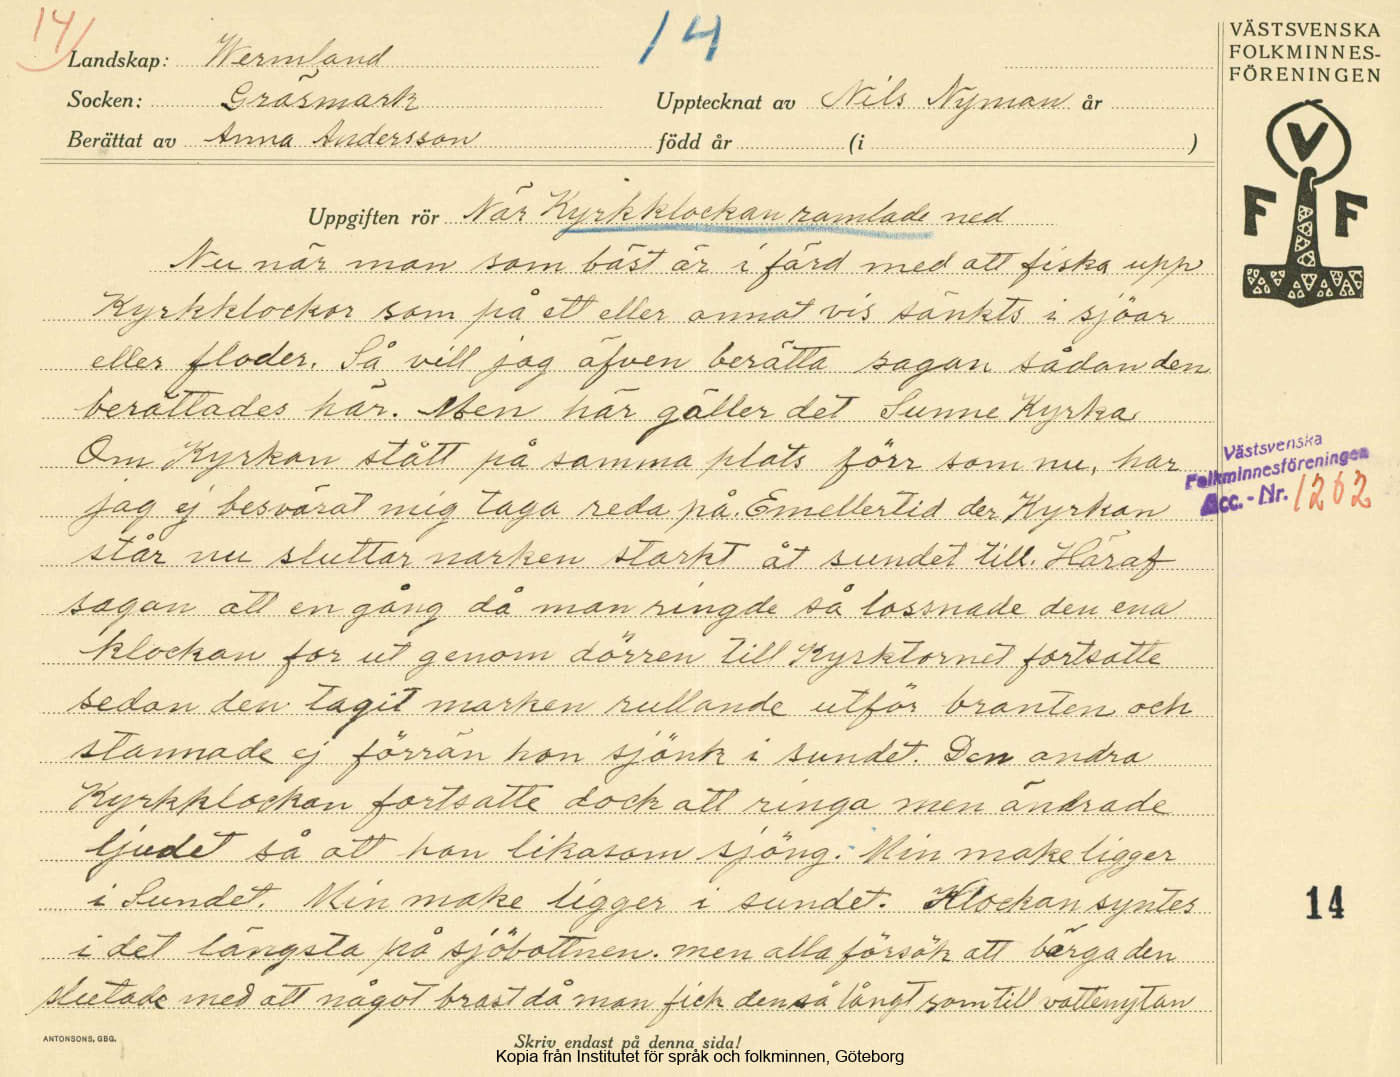 14
14
VÄSTSVENSKA
FOLKMINNES-
FÖRENINGEN
Landskap: Wermland
Socken: Gräsmark
Upptecknat av Nils Nyman år
Berättat av Anna Andersson
född år (i )
V
F F
Uppgiften rör När Kyrkklockan ramlade ned
Nu när man som bäst är i färd med att fiska upp
Kyrkklockor som på ett eller annat vis sänkts i sjöar
eller floder. Så vill jag äfven berätta sagan sådan den
berättades här. Men här gäller det Sunne Kyrka
Om Kyrkan stått på samma plats förr som nu, har
jag ej besvärat mig taga reda på. Emellertid der Kyrkan
står nu sluttar marken starkt åt sundet till. Häraf
sagan att en gång då man ringde så lossnade den ena
klockan for ut genom dörren till Kyrktornet fortsatte
sedan den tagit marken rullande utför branten och
stannade ej förrän hon sjönk i sundet. Den andra
Kyrkklockan fortsatte dock att ringa men ändrade
ljudet så att hon likasom sjöng. Min make ligger
i Sundet. Min make ligger i sundet. Klockan syntes
i det längsta på sjöbottnen. men alla försök att bärga den
slutade med att något brast då man fick den så långt som till vattenytan
Västsvenska
Folkminnesföreningen
Acc. - Nr. 1262
14
ANTONSONS, GBG.
Skriv endast på denna sida!
Kopia från Institutet för språk och folkminnen, Göteborg